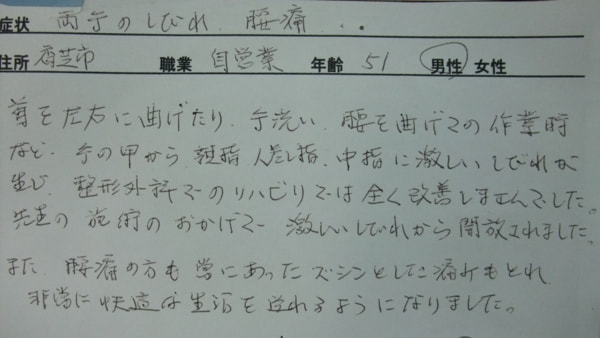 症状 両手のしびれ、腰痛 、.
住所 香芝市 職業 自営業 年齢 51 男性 女性
首を左右に曲げたり、手洗い、腰を曲げての作業時
など、手の甲から、親指、人差し指、中指に激しいしびれが
生じ、整形外科でのリハビリでは全く改善しませんでした。
先生の施術のおかげで激しいしびれから開放されました。
また、腰痛の方も常にあったズシンとした痛みもとれ、
非常に快適な生活を送れるようになりました。